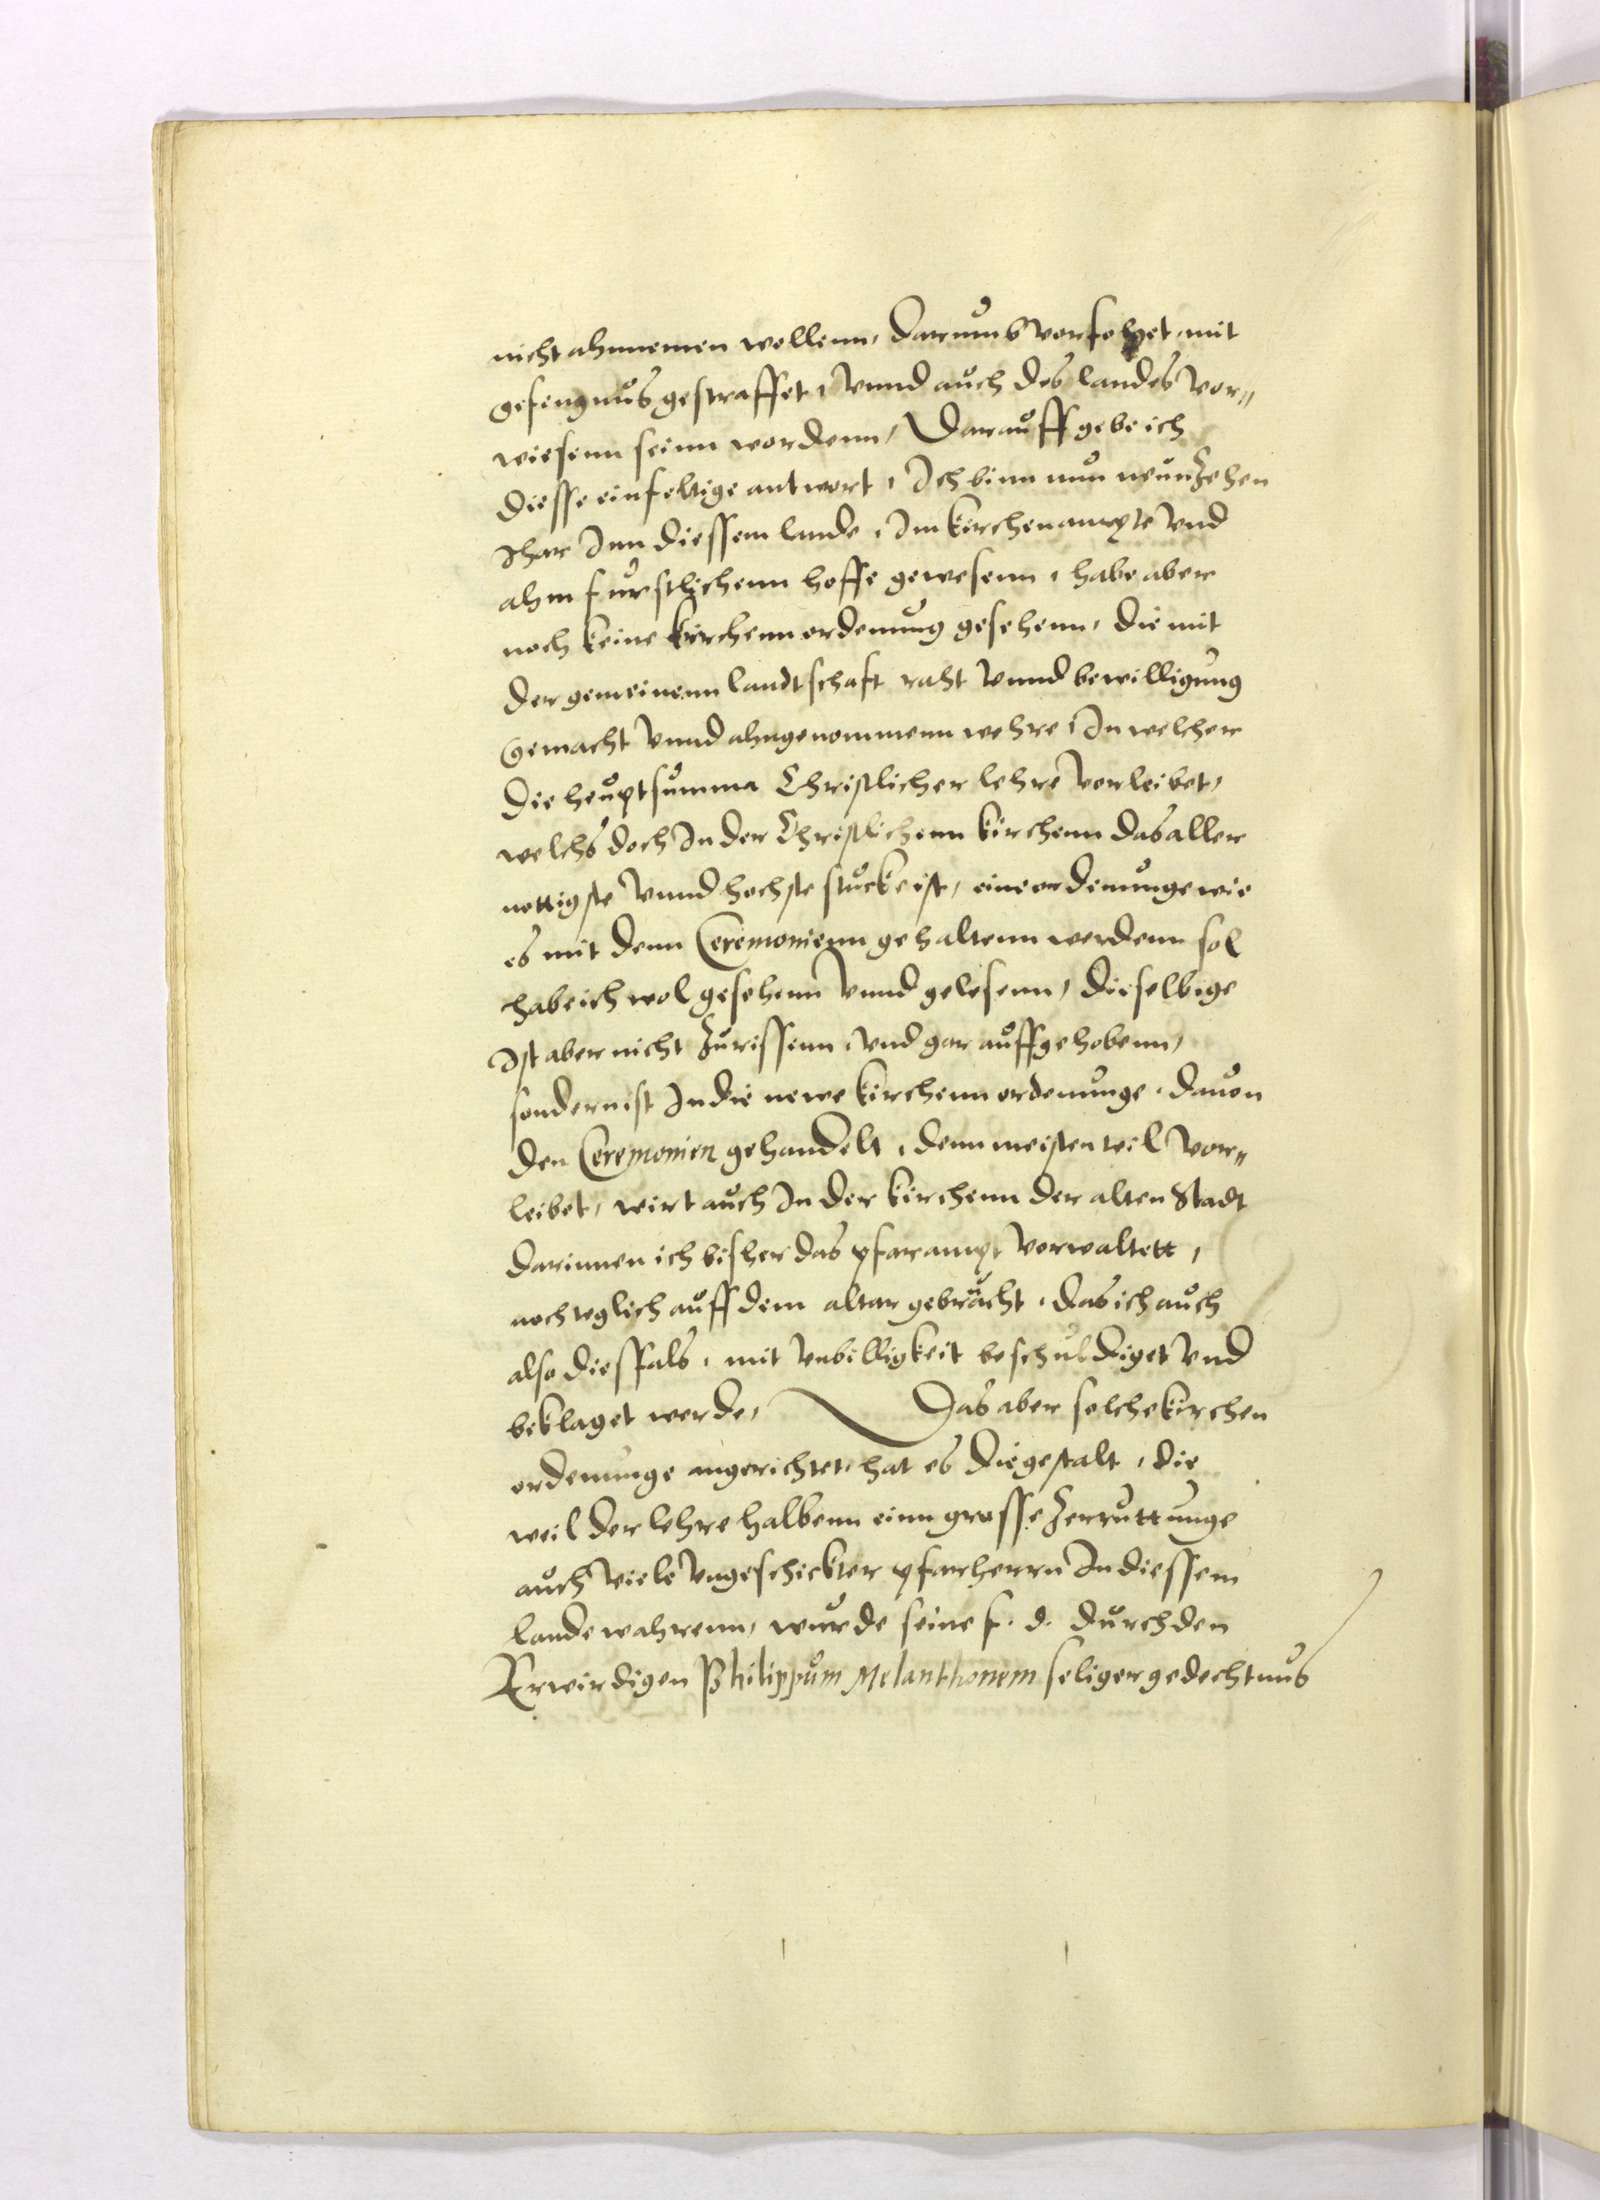 nicht ahnnemen wollenn, darumb vorfolget mit
gefengnus gestraffet, vnnd auch des landes vor„
wiesenn seinn wordenn, Darauff gebe ich
diesse einfeltige antwort, Ich binn nun neunzehen
Jhar Inn diessem lande, Im kirchenampte vnd
ahm furstlichenn hoffe gewesenn, habe aber
noch keine kirchenn ordenung gesehenn, die mit
der gemeinenn landtschaft raht vnnd bewilligung
Gemacht vnnd ahngenommenn wehre, In welcher
die heuptsumma Christlicher lehre vorleibet,
welchs doch In der Christlichenn kirchenn das aller
nottigste vnnd hochste stucke ist, eine ordenunge wie
es mit denn Ceremonienn gehaltenn werdenn sol
habe ich wol gesehenn vnnd gelesenn, dieselbige
Ist aber nicht zurissenn vnd gar auffgehobenn,
sondern ist In die newe kirchenn ordenunge, dauon
den Ceremonien gehandelt, denn meisten teil vor„
leibet, wirt auch In der kirchenn der alten Stadt
darinnen ich bisher das pfarampt vorwaltett,
noch teglich auff dem altar gebraucht, das ich auch
also diesfals, mit vnbilligkeit beschuldiget vnd
beklaget werde, Das aber solche kirchen
ordenunge angerichtet, hat es die gestalt, die
weil der lehre halbenn einn grosse zerruttunge
auch viele vngeschickter pfarherrn In diessem
lande wahrenn, wurde seine f. d. durch den
Erwirdigen Philippum Melanthonem seliger gedechtnus